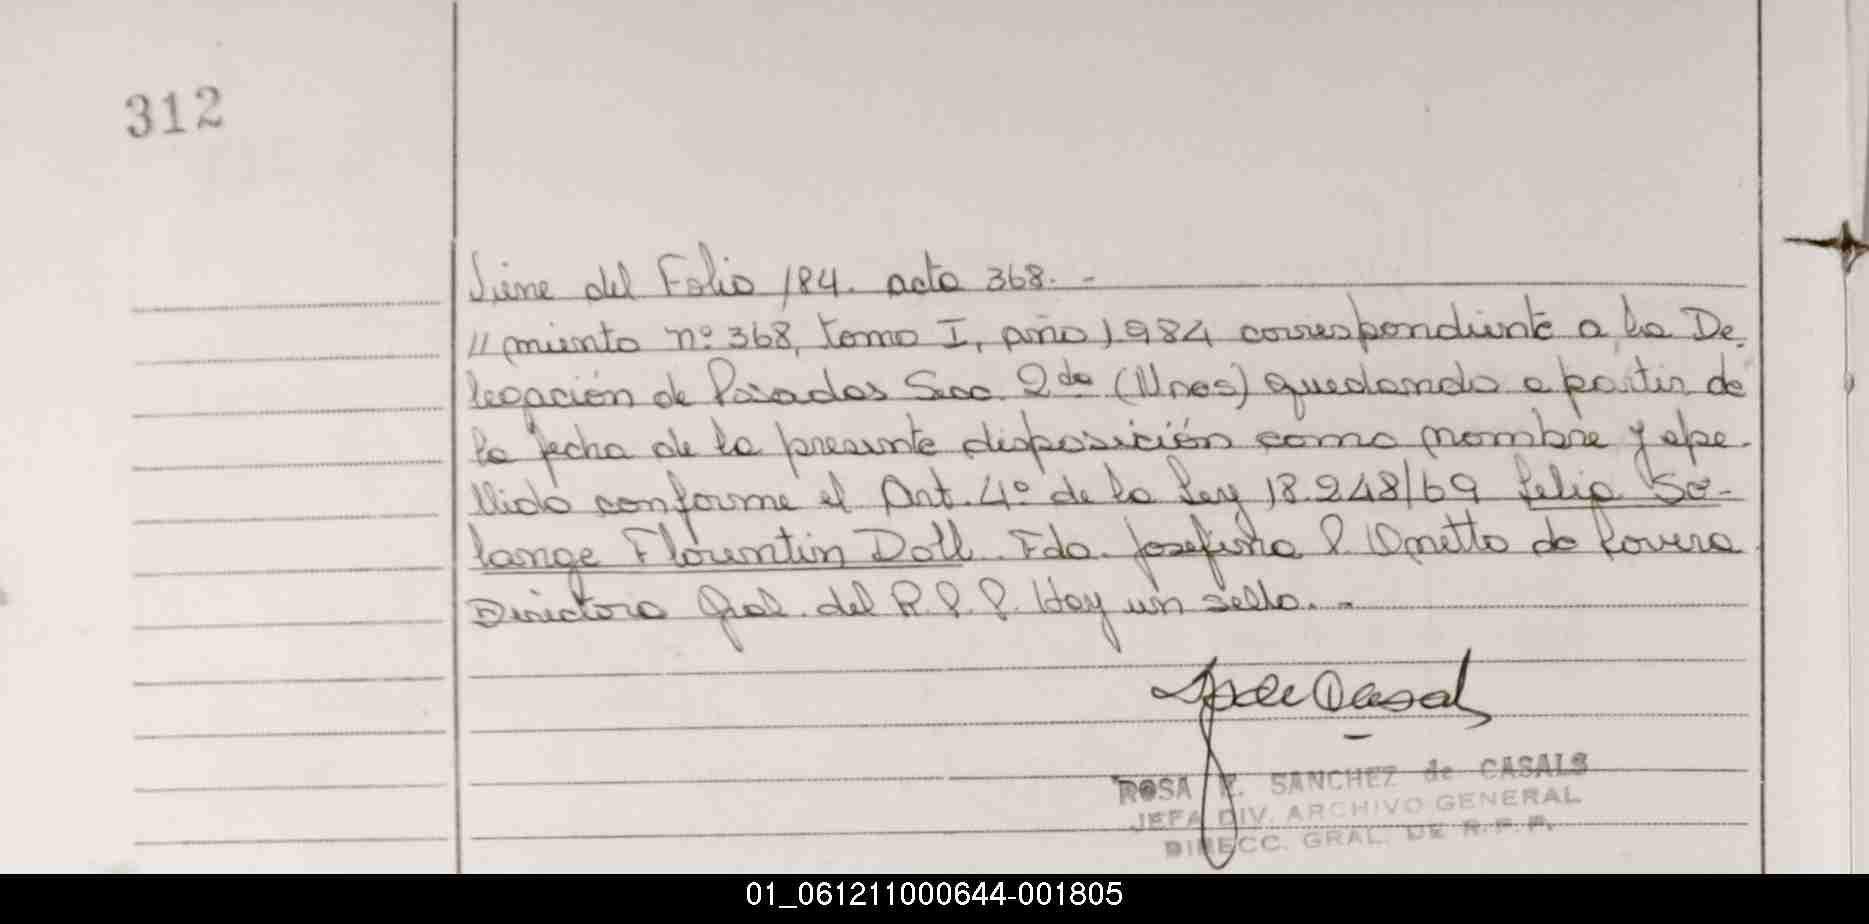 312
Viene del Folio 184. acta 368.-
//miento nº 368, tomo I, año 1984 correspondiente a la De-
legación de Posadas Secc. 2da (Mnes) quedando a partir de
la fecha de la presente disposición como nombre y ape-
llido conforme el Art. 4º de la Ley 18.248/69 Lelia So-
lange Florentin Doll. Fdo. Josefina de Lovera
Directora Gral. del R.P.P. Hay un sello.-
ROSA E. SANCHEZ de CASALS
JEFA DIV. ARCHIVO GENERAL
DIRECC. GRAL. DE R.P.P.
01_061211000644-001805